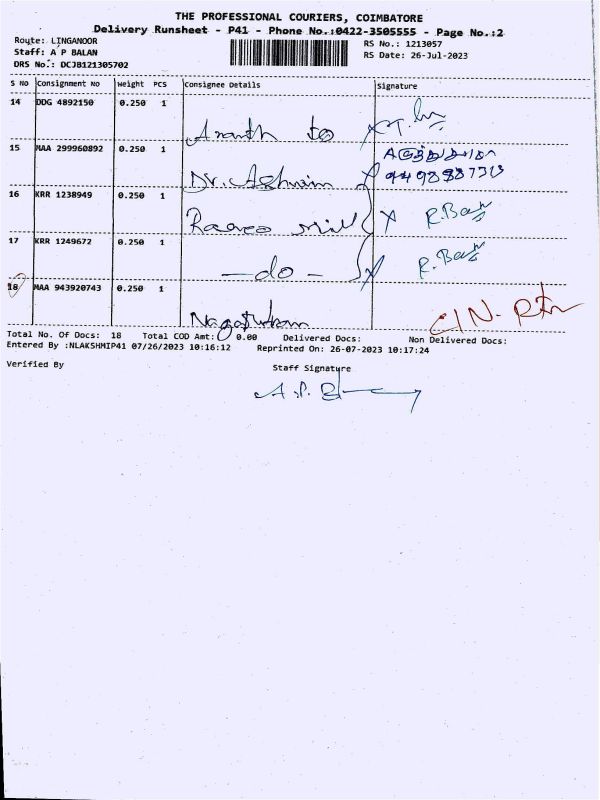 THE PROFESSIONAL COURIERS, COIMBATORE
Delivery Runsheet - P41 - Phone No.:0422-3505555 - Page No.:2
Route: LINGANOOR
Staff: A P BALAN
DRS No.: DCJB121305702
RS No.: 1213057
RS Date: 26-Jul-2023
S NO Consignment No Weight PCS Consignee Details Signature
14 DDG 4892150 0.250 1
15 MAA 299960892 0.250 1
Dr.
16 KRR 1238949 0.250 1
Mill R.
17 KRR 1249672 0.250 1
- do - R.
18 MAA 943920743 0.250 1
Total No. Of Docs: 18 Total COD Amt: 0.00 Delivered Docs: Non Delivered Docs:
Entered By :NLAKSHMIP41 07/26/2023 10:16:12 Reprinted On: 26-07-2023 10:17:24
Verified By Staff Signature